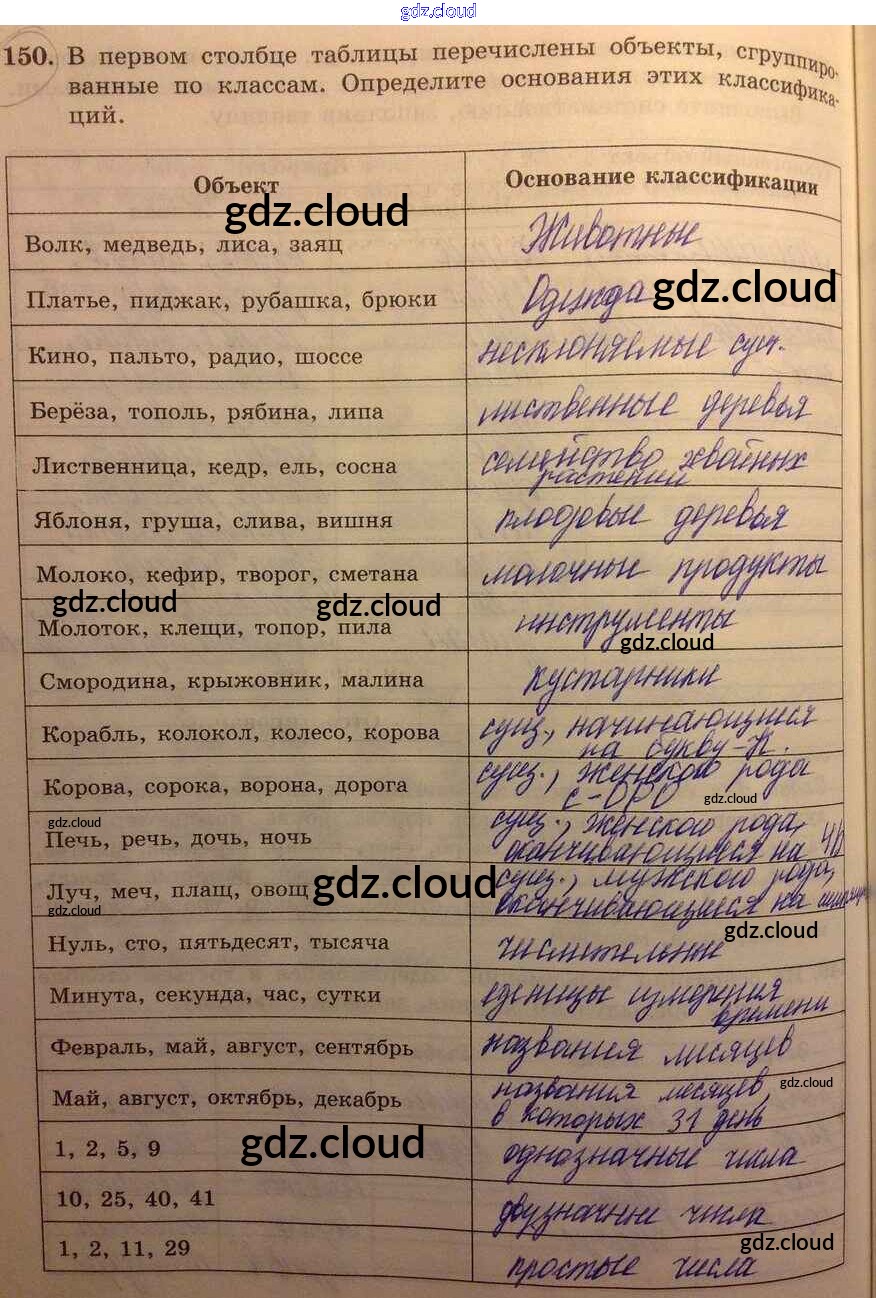 gdz.cloud
150. В первом столбце таблицы перечислены объекты, сгруппиро-
ванные по классам. Определите основания этих классифика-
ций.
Объект Основание классификации
gdz.cloud
Волк, медведь, лиса, заяц Животные
Платье, пиджак, рубашка, брюки Одежда gdz.cloud
Кино, пальто, радио, шоссе несклоняемые сущ.
Берёза, тополь, рябина, липа лиственные деревья
Лиственница, кедр, ель, сосна семейство хвойных
растений
Яблоня, груша, слива, вишня плодовые деревья
Молоко, кефир, творог, сметана молочные продукты
gdz.cloud gdz.cloud
Молоток, клещи, топор, пила инструменты
gdz.cloud
Смородина, крыжовник, малина кустарники
Корабль, колокол, колесо, корова сущ., начинающиеся
на букву-К.
Корова, сорока, ворона, дорога сущ., женского рода
с-ОРО gdz.cloud
gdz.cloud
Печь, речь, дочь, ночь сущ., женского рода,
оканчивающиеся на
Луч, меч, плащ, овощ gdz.cloud сущ., мужского рода,
gdz.cloud оканчивающиеся на
gdz.cloud
Нуль, сто, пятьдесят, тысяча числительные
Минута, секунда, час, сутки еденицы измерения
времени
Февраль, май, август, сентябрь названия месяцев
Май, август, октябрь, декабрь названия месяцев, gdz.cloud
в которых 31 день
1, 2, 5, 9 gdz.cloud однозначные числа
10, 25, 40, 41 двузначные числа
gdz.cloud
1, 2, 11, 29 простые числа